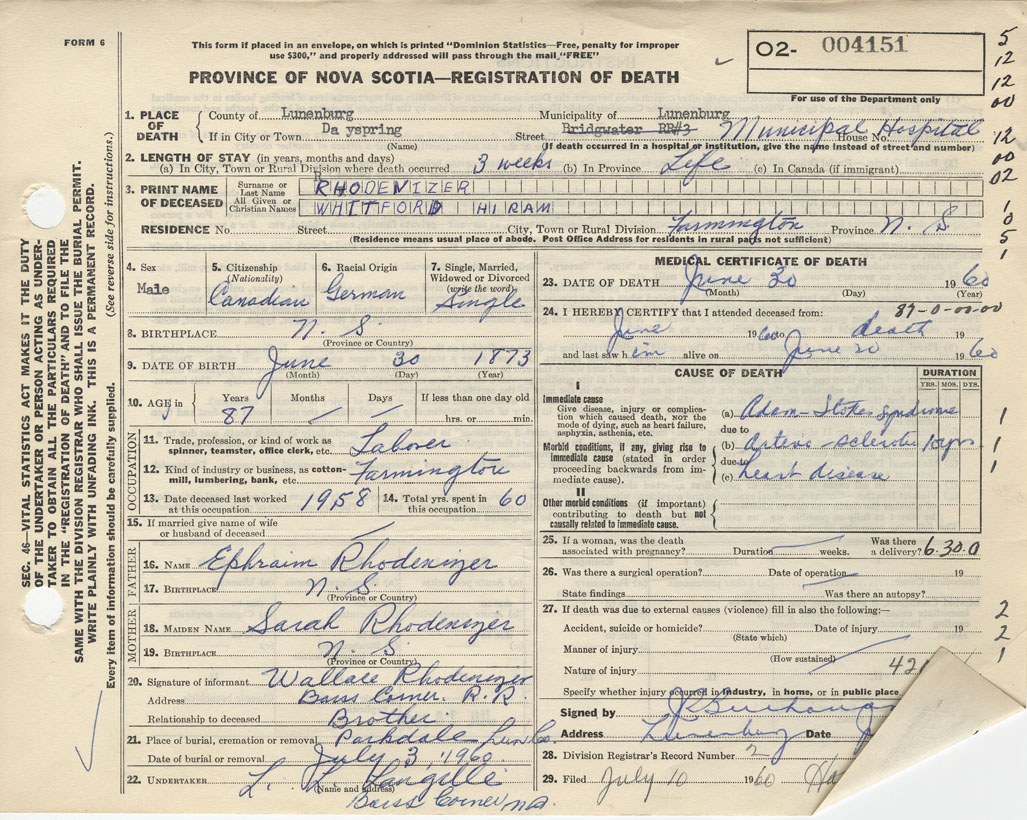 FORM 6
This form if placed in an envelope, on which is printed "Dominion Statistics—Free, penalty for improper
use $300," and properly addressed will pass through the mail "FREE"
PROVINCE OF NOVA SCOTIA—REGISTRATION OF DEATH
O2- 004151
For use of the Department only
5
12
12
00
12
00
02
1
0
5
1
SEC. 46—VITAL STATISTICS ACT MAKES IT THE DUTY
OF THE UNDERTAKER OR PERSON ACTING AS UNDER-
TAKER TO OBTAIN ALL THE PARTICULARS REQUIRED
IN THE "REGISTRATION OF DEATH" AND TO FILE THE
SAME WITH THE DIVISION REGISTRAR WHO SHALL ISSUE THE BURIAL PERMIT.
WRITE PLAINLY WITH UNFADING INK. THIS IS A PERMANENT RECORD.
Every item of information should be carefully supplied. (See reverse side for instructions.)
1. PLACE OF DEATH
County of Lunenburg Municipality of Lunenburg
If in City or Town Dayspring Street Bridgwater RR#3 Municipal Hospital House No.
(Name) (If death occurred in a hospital or institution, give the name instead of street and number)
2. LENGTH OF STAY (in years, months and days)
(a) In City, Town or Rural Division where death occurred 3 weeks (b) In Province Life (c) In Canada (if immigrant)
3. PRINT NAME OF DECEASED
Surname or Last Name RHODENIZER
All Given or Christian Names WHITFORD HIRAM
RESIDENCE No. Street City, Town or Rural Division Farmington Province N. S.
(Residence means usual place of abode. Post Office Address for residents in rural parts not sufficient)
4. Sex Male
5. Citizenship (Nationality) Canadian
6. Racial Origin German
7. Single, Married, Widowed or Divorced (write the word) Single
8. BIRTHPLACE N. S.
(Province or Country)
9. DATE OF BIRTH June 30 1873
(Month) (Day) (Year)
10. AGE in Years 87 Months Days If less than one day old
hrs. or min.
OCCUPATION
11. Trade, profession, or kind of work as
spinner, teamster, office clerk, etc. Labover
12. Kind of industry or business, as cotton-
mill, lumbering, bank, etc. Farmington
13. Date deceased last worked
at this occupation 1958
14. Total yrs. spent in
this occupation 60
15. If married give name of wife
or husband of deceased
FATHER
16. NAME Ephraim Rhodenizer
17. BIRTHPLACE N. S.
(Province or Country)
MOTHER
18. MAIDEN NAME Sarah Rhodenizer
19. BIRTHPLACE N. S.
(Province or Country)
20. Signature of informant Wallace Rhodenizer
Address Barss Corner R.R.
Relationship to deceased Brother
21. Place of burial, cremation or removal Parkdale Lun Co.
Date of burial or removal July 3, 1960
22. UNDERTAKER L. L. Langille
(Name and address)
Barss Corner N.S.
MEDICAL CERTIFICATE OF DEATH
23. DATE OF DEATH June 30 1960
(Month) (Day) (Year)
24. I HEREBY CERTIFY that I attended deceased from: 87-0-00-00
June 1960 to death 19
and last saw him alive on June 20 1960
CAUSE OF DEATH
DURATION
YRS. MOS. DYS.
I
Immediate cause
Give disease, injury or complica-
tion which caused death, not the
mode of dying, such as heart failure,
asphyxia, asthenia, etc.
(a) Adam-Stokes syndrome 1
due to
Morbid conditions, if any, giving rise to
immediate cause (stated in order
proceeding backwards from im-
mediate cause).
(b) Arterio-sclerotic 10 yrs 1
due to
(c) heart disease 1
II
Other morbid conditions (if important)
contributing to death but not
causally related to immediate cause.
25. If a woman, was the death
associated with pregnancy? Duration weeks. Was there
a delivery? 6.30.0
26. Was there a surgical operation? Date of operation 19
State findings Was there an autopsy?
27. If death was due to external causes (violence) fill in also the following:—
Accident, suicide or homicide? Date of injury 19
(State which)
Manner of injury
(How sustained)
Nature of injury 42
2
2
1
Specify whether injury occurred in industry, in home, or in public place
Signed by
Address Lunenburg Date
28. Division Registrar's Record Number 2
29. Filed July 10 1960